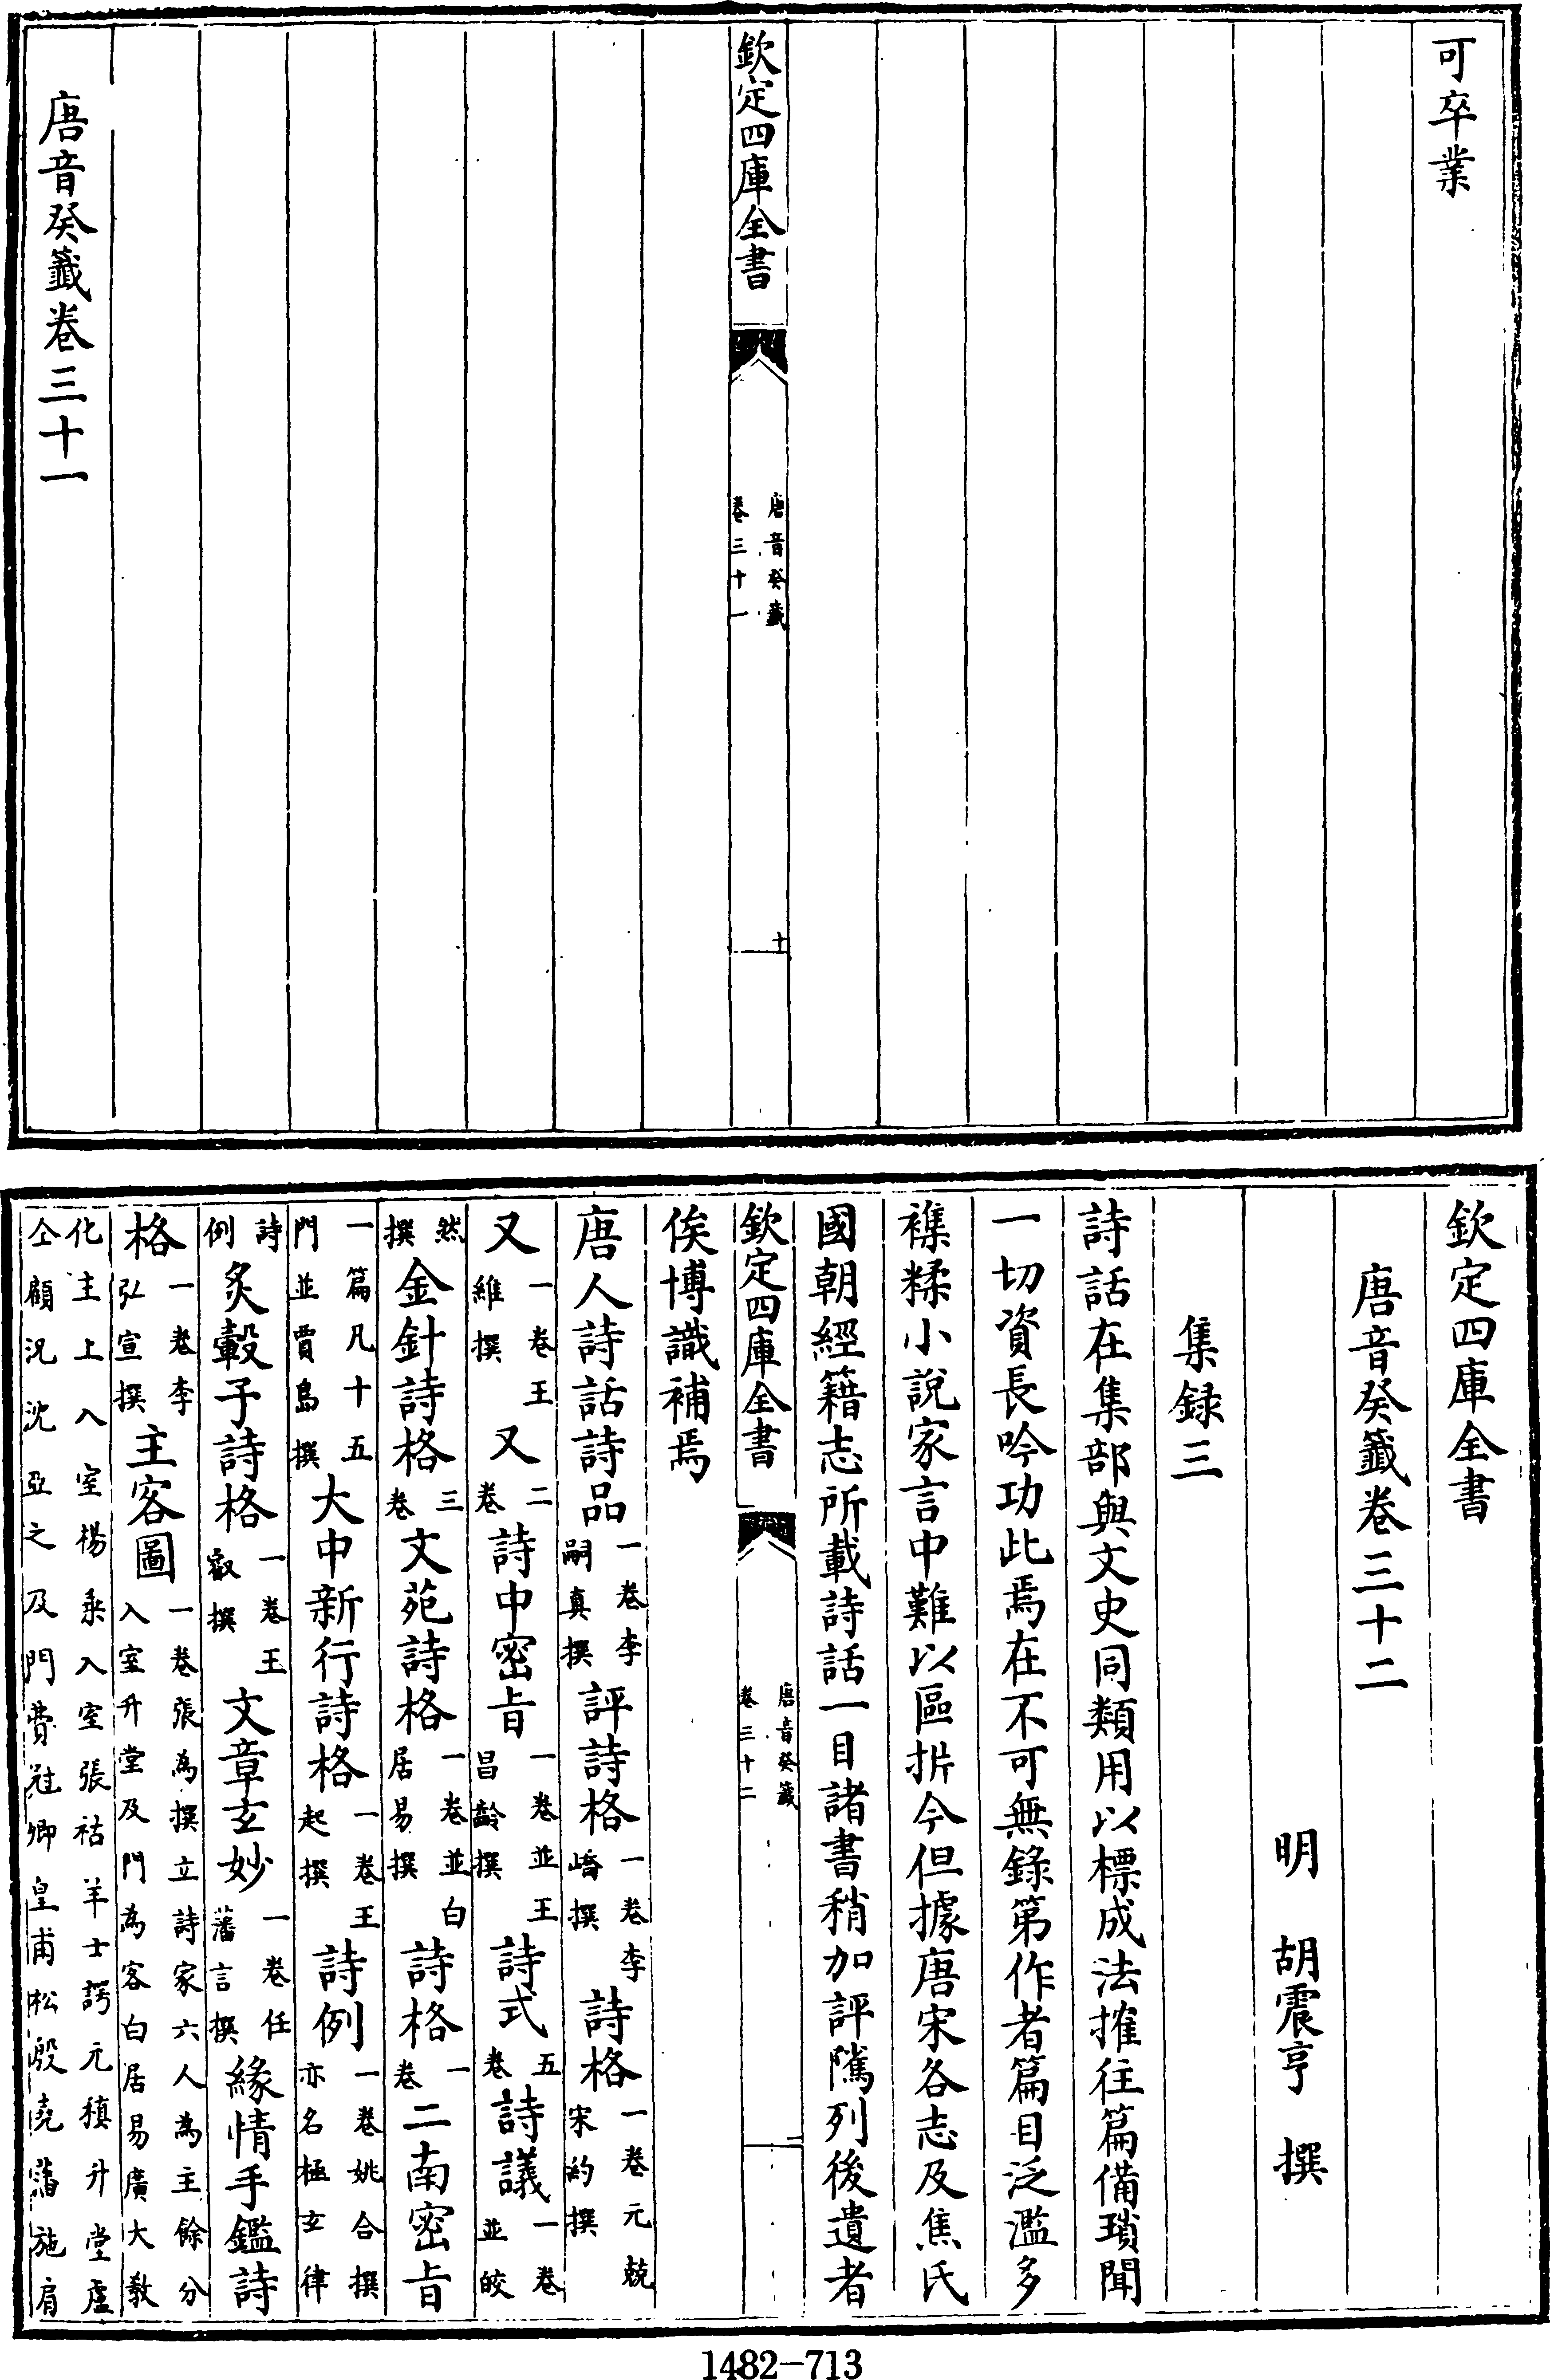 可卒業
欽定四庫全書
唐音癸籤
卷三十一
十
唐音癸籤卷三十一
欽定四庫全書
唐音癸籤卷三十二
明 胡震亨 撰
集録三
詩話在集部與文史同類用以標成法摧往篇備瑣聞
一切資長吟功此焉在不可無錄第作者篇目泛濫多
襍糅小説家言中難以區拆今但據唐宋各志及焦氏
國朝經籍志所載詩話一目諸書稍加評隲列後遺者
欽定四庫全書
唐音癸籤
卷三十二
俟博識補焉
唐人詩話詩品一卷李嗣真撰評詩格一卷李嶠撰詩格一卷元兢宋約撰
又一卷王維撰又二卷詩中密旨一卷並王昌齡撰詩式五卷詩議一卷並皎
然撰金針詩格三卷文苑詩格一卷並白居易撰詩格一卷二南密旨
一篇凡十五門並賈島撰大中新行詩格一卷王起撰詩例一卷姚合撰亦名極玄律
詩例炙轂子詩格一卷王叡撰文章玄妙一卷任藩言撰緣情手鑑詩
格一卷李弘宣撰主客圖一卷張為撰立詩家六人為主餘分入室升堂及門為客白居易廣大教
化主上入室楊乘入室張祜羊士諤元稹升堂盧仝顧況沈亞之及門費冠卿皇甫松殷堯藩施肩
1482-713